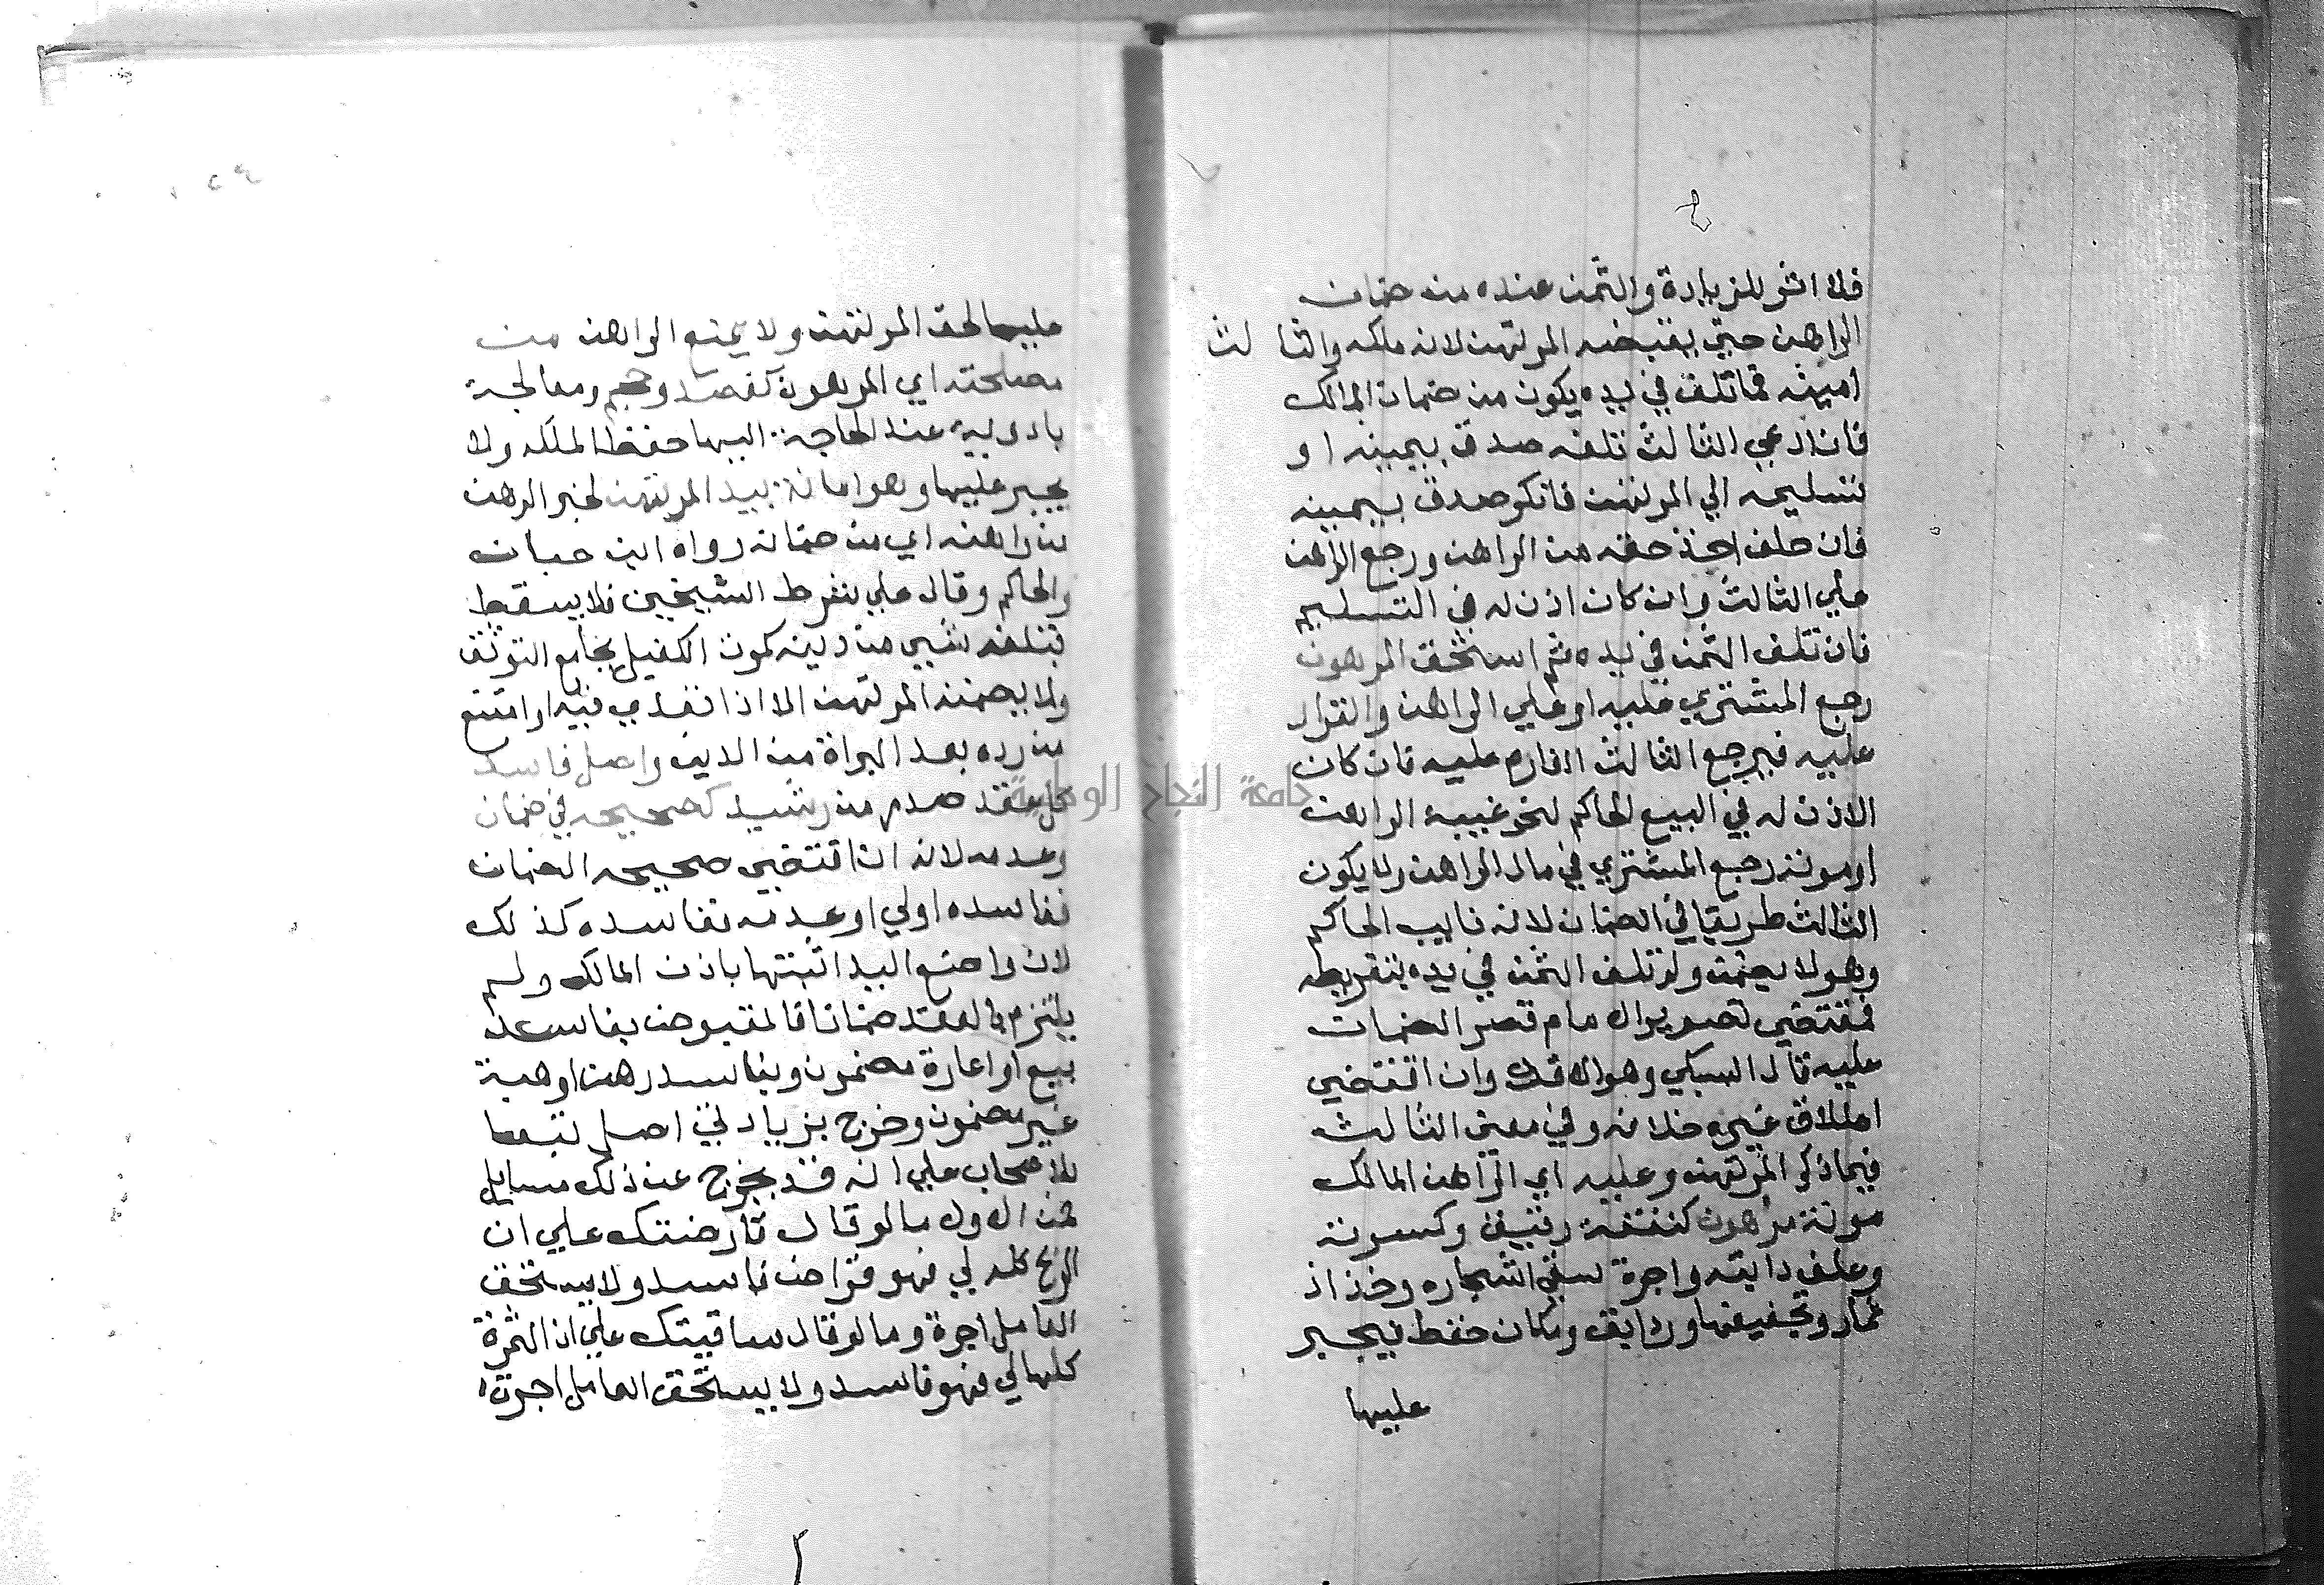 فلا اثر للزيادة والثمن عنده من ضمان
الراهن حتي يقبضه المرتهن لانه ملكه والثالث
امينه فما تلف في يده يكون من ضمان المالك
فان ادعي الثالث تلفه صدق بيمينه او
تسليمه الي المرتهن فانكر صدق بيمينه
فان حلف اخذ حقه من الراهن ورجع الراهن
علي الثالث وان كان اذن له في التسليم
فان تلف الثمن في يده ثم استحق المرهون
رجع المشتري عليه او علي الراهن والقرار
عليه فيرجع الثالث الغارم عليه فان كان
الاذن له في البيع الحاكم لنحو غيبة الراهن
او موته رجع المشتري في مال الراهن ولا يكون
الثالث طريقا في الضمان لانه نايب الحاكم
وهو لا يضمن ولو تلف الثمن في يده بتفريطه
فمقتضي تصوير الامام قصر الضمان
عليه قال السبكي وهو الاقرب وان اقتضي
اطلاق غيره خلافه وفي معني الثالث
فيما ذكر المرتهن وعليه اي الراهن المالك
مونة مرهون كنفقة رقيق وكسوته
وعلف دابته واجرة سقي اشجاره وجذاذ
ثمار وتجفيفها ورد ابق ومكان حفظ فيجبر
عليها
عليها لحق المرتهن ولا يمنع الراهن من
مصلحته اي المرهون كفصد وحجم ومعالجة
بادوية عند الحاجة اليها حفظا لملكه ولا
يجبر عليها وهو امانة بيد المرتهن لخبر الرهن
من راهنه اي من ضمانه رواه ابن حبان
والحاكم وقال علي شرط الشيخين فلا يسقط
بتلفه شيي من دينه كموت الكفيل بجامع التوثق
ولا يضمنه المرتهن الا اذا تعدي فيه او امتنع
من رده بعد البراة من الدين واصل فاسد
كل عقد صدر من رشيد كصحيحه في ضمان
وعدمه لانه ان اقتضي صحيحه الضمان
ففاسده اولي او عدمه ففاسده كذلك
لان واضع اليد اثبتها باذن المالك ولم
يلتزم بالعقد ضمانا فالمقبوض بفاسد
بيع او اعارة مضمون وبفاسد رهن او هبة
غير مضمون وخرج بزيادتي اصل تبعا
للاصحاب علي انه قد يخرج عن ذلك مسايل
فمن الاول ما لو قال قارضتك علي ان
الربح كله لي فهو قراض فاسد ولا يستحق
العامل اجرة وما لو قال ساقيتك علي ان الثمرة
كلها لي فهو فاسد ولا يستحق العامل اجرة
جامعة النجاح الوطنية